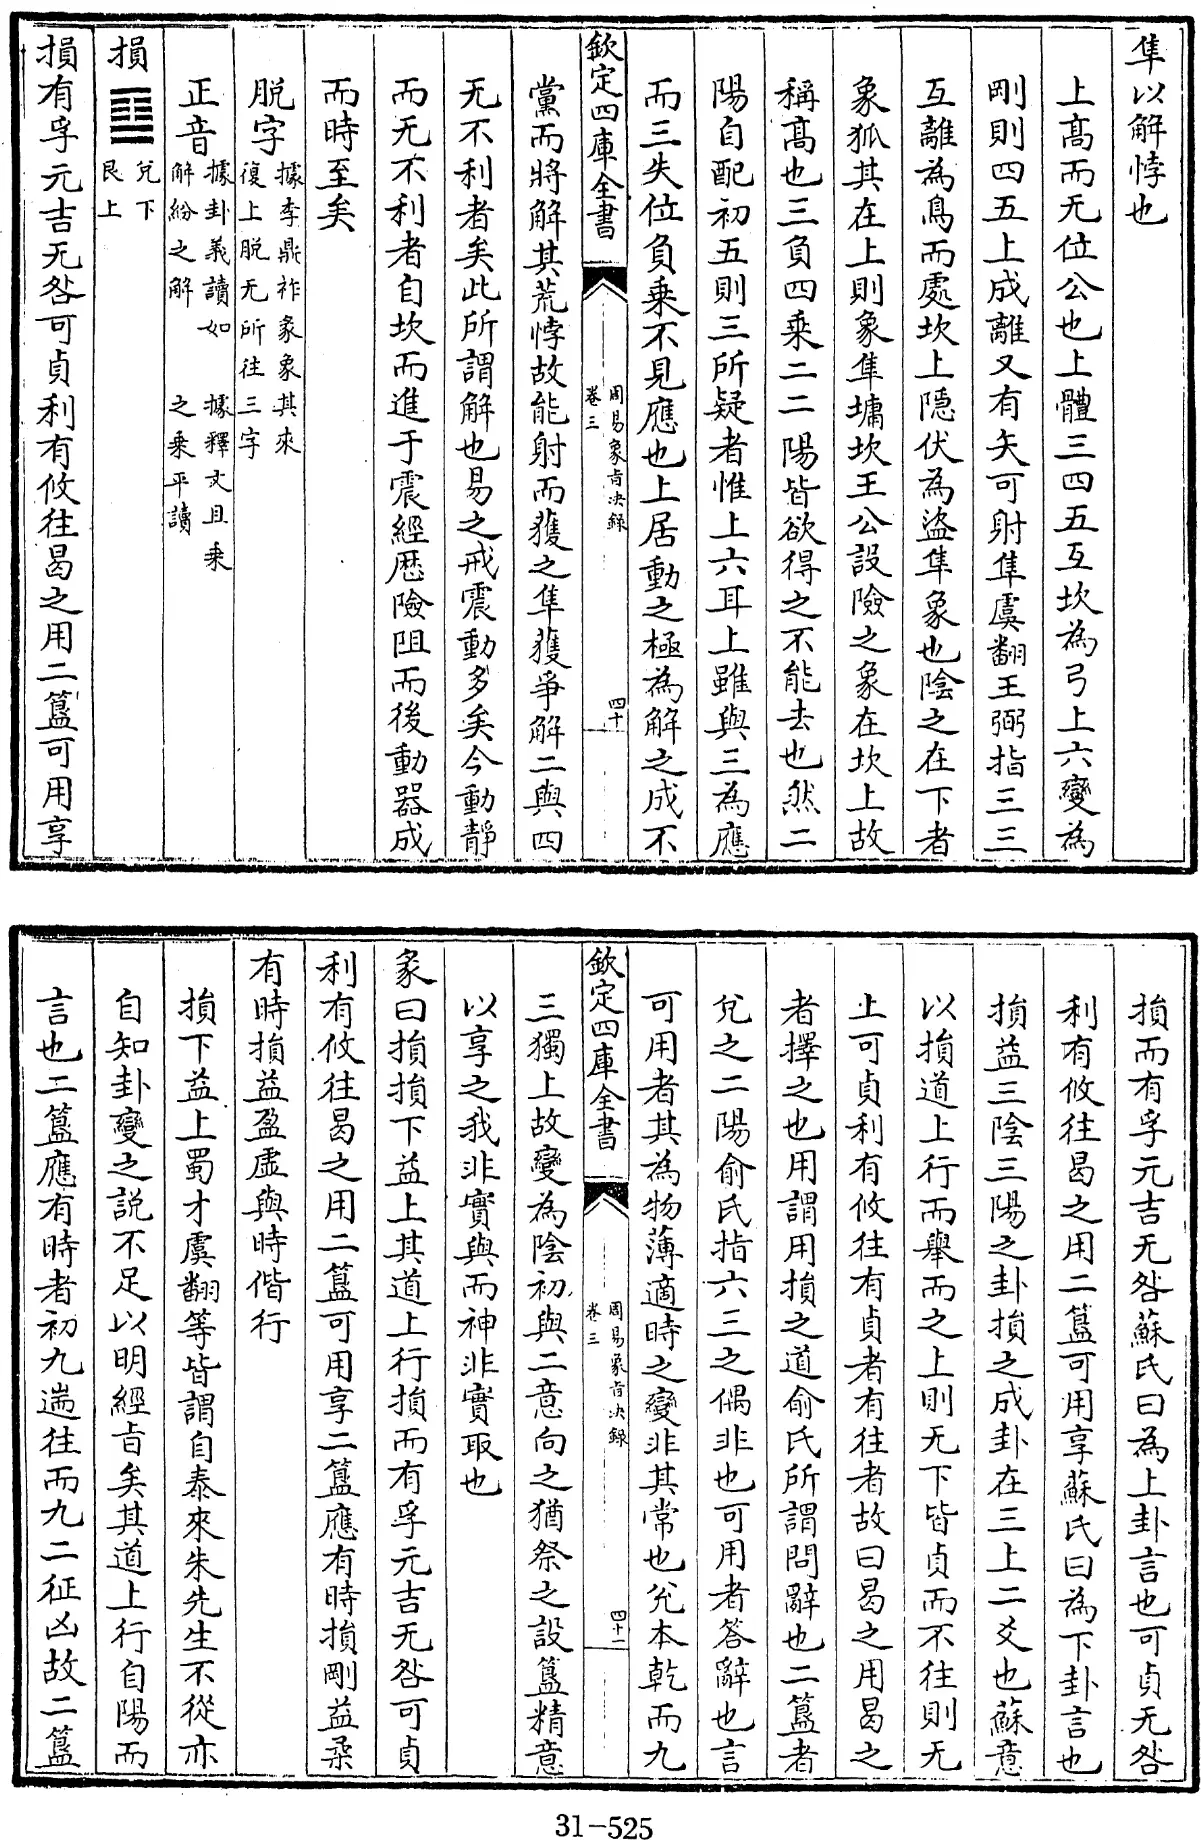 隼以解悖也
上髙而无位公也上體三四五互坎為弓上六變為
剛則四五上成離又有矢可射隼虞翻王弼指三三
互離為鳥而處坎上隠伏為盜隼象也陰之在下者
象狐其在上則象隼墉坎王公設險之象在坎上故
稱髙也三負四乘二二陽皆欲得之不能去也然二
陽自配初五則三所疑者惟上六耳上雖與三為應
而三失位負乗不見應也上居動之極為解之成不
欽定四庫全書
周易象旨決録
卷三
四十
黨而將解其荒悖故能射而獲之隼獲爭解二與四
无不利者矣此所謂解也易之戒震動多矣今動靜
而无不利者自坎而進于震經歴險阻而後動器成
而時至矣
脱字
據李鼎祚象象其來
復上脱无所往三字
正音
據卦義讀如
解紛之解
據釋文且乗
之乗平讀
損䷨
兌下
艮上
損有孚元吉无咎可貞利有攸往曷之用二簋可用享
損而有孚元吉无咎蘇氏曰為上卦言也可貞无咎
利有攸往曷之用二簋可用享蘇氏曰為下卦言也
損益三陰三陽之卦損之成卦在三上二爻也蘇意
以損道上行而舉而之上則无下皆貞而不往則无
上可貞利有攸往有貞者有往者故曰曷之用曷之
者擇之也用謂用損之道俞氏所謂問辭也二簋者
兌之二陽俞氏指六三之偶非也可用者答辭也言
可用者其為物薄適時之變非其常也兊本乾而九
欽定四庫全書
周易象旨決録
卷三
四十一
三獨上故變為陰初與二意向之猶祭之設簋精意
以享之我非實與而神非實取也
彖曰損損下益上其道上行損而有孚元吉无咎可貞
利有攸往曷之用二簋可用享二簋應有時損剛益柔
有時損益盈虛與時偕行
損下益上蜀才虞翻等皆謂自泰來朱先生不從亦
自知卦變之説不足以明經㫖矣其道上行自陽而
言也二簋應有時者初九遄往而九二征凶故二簋
31-525